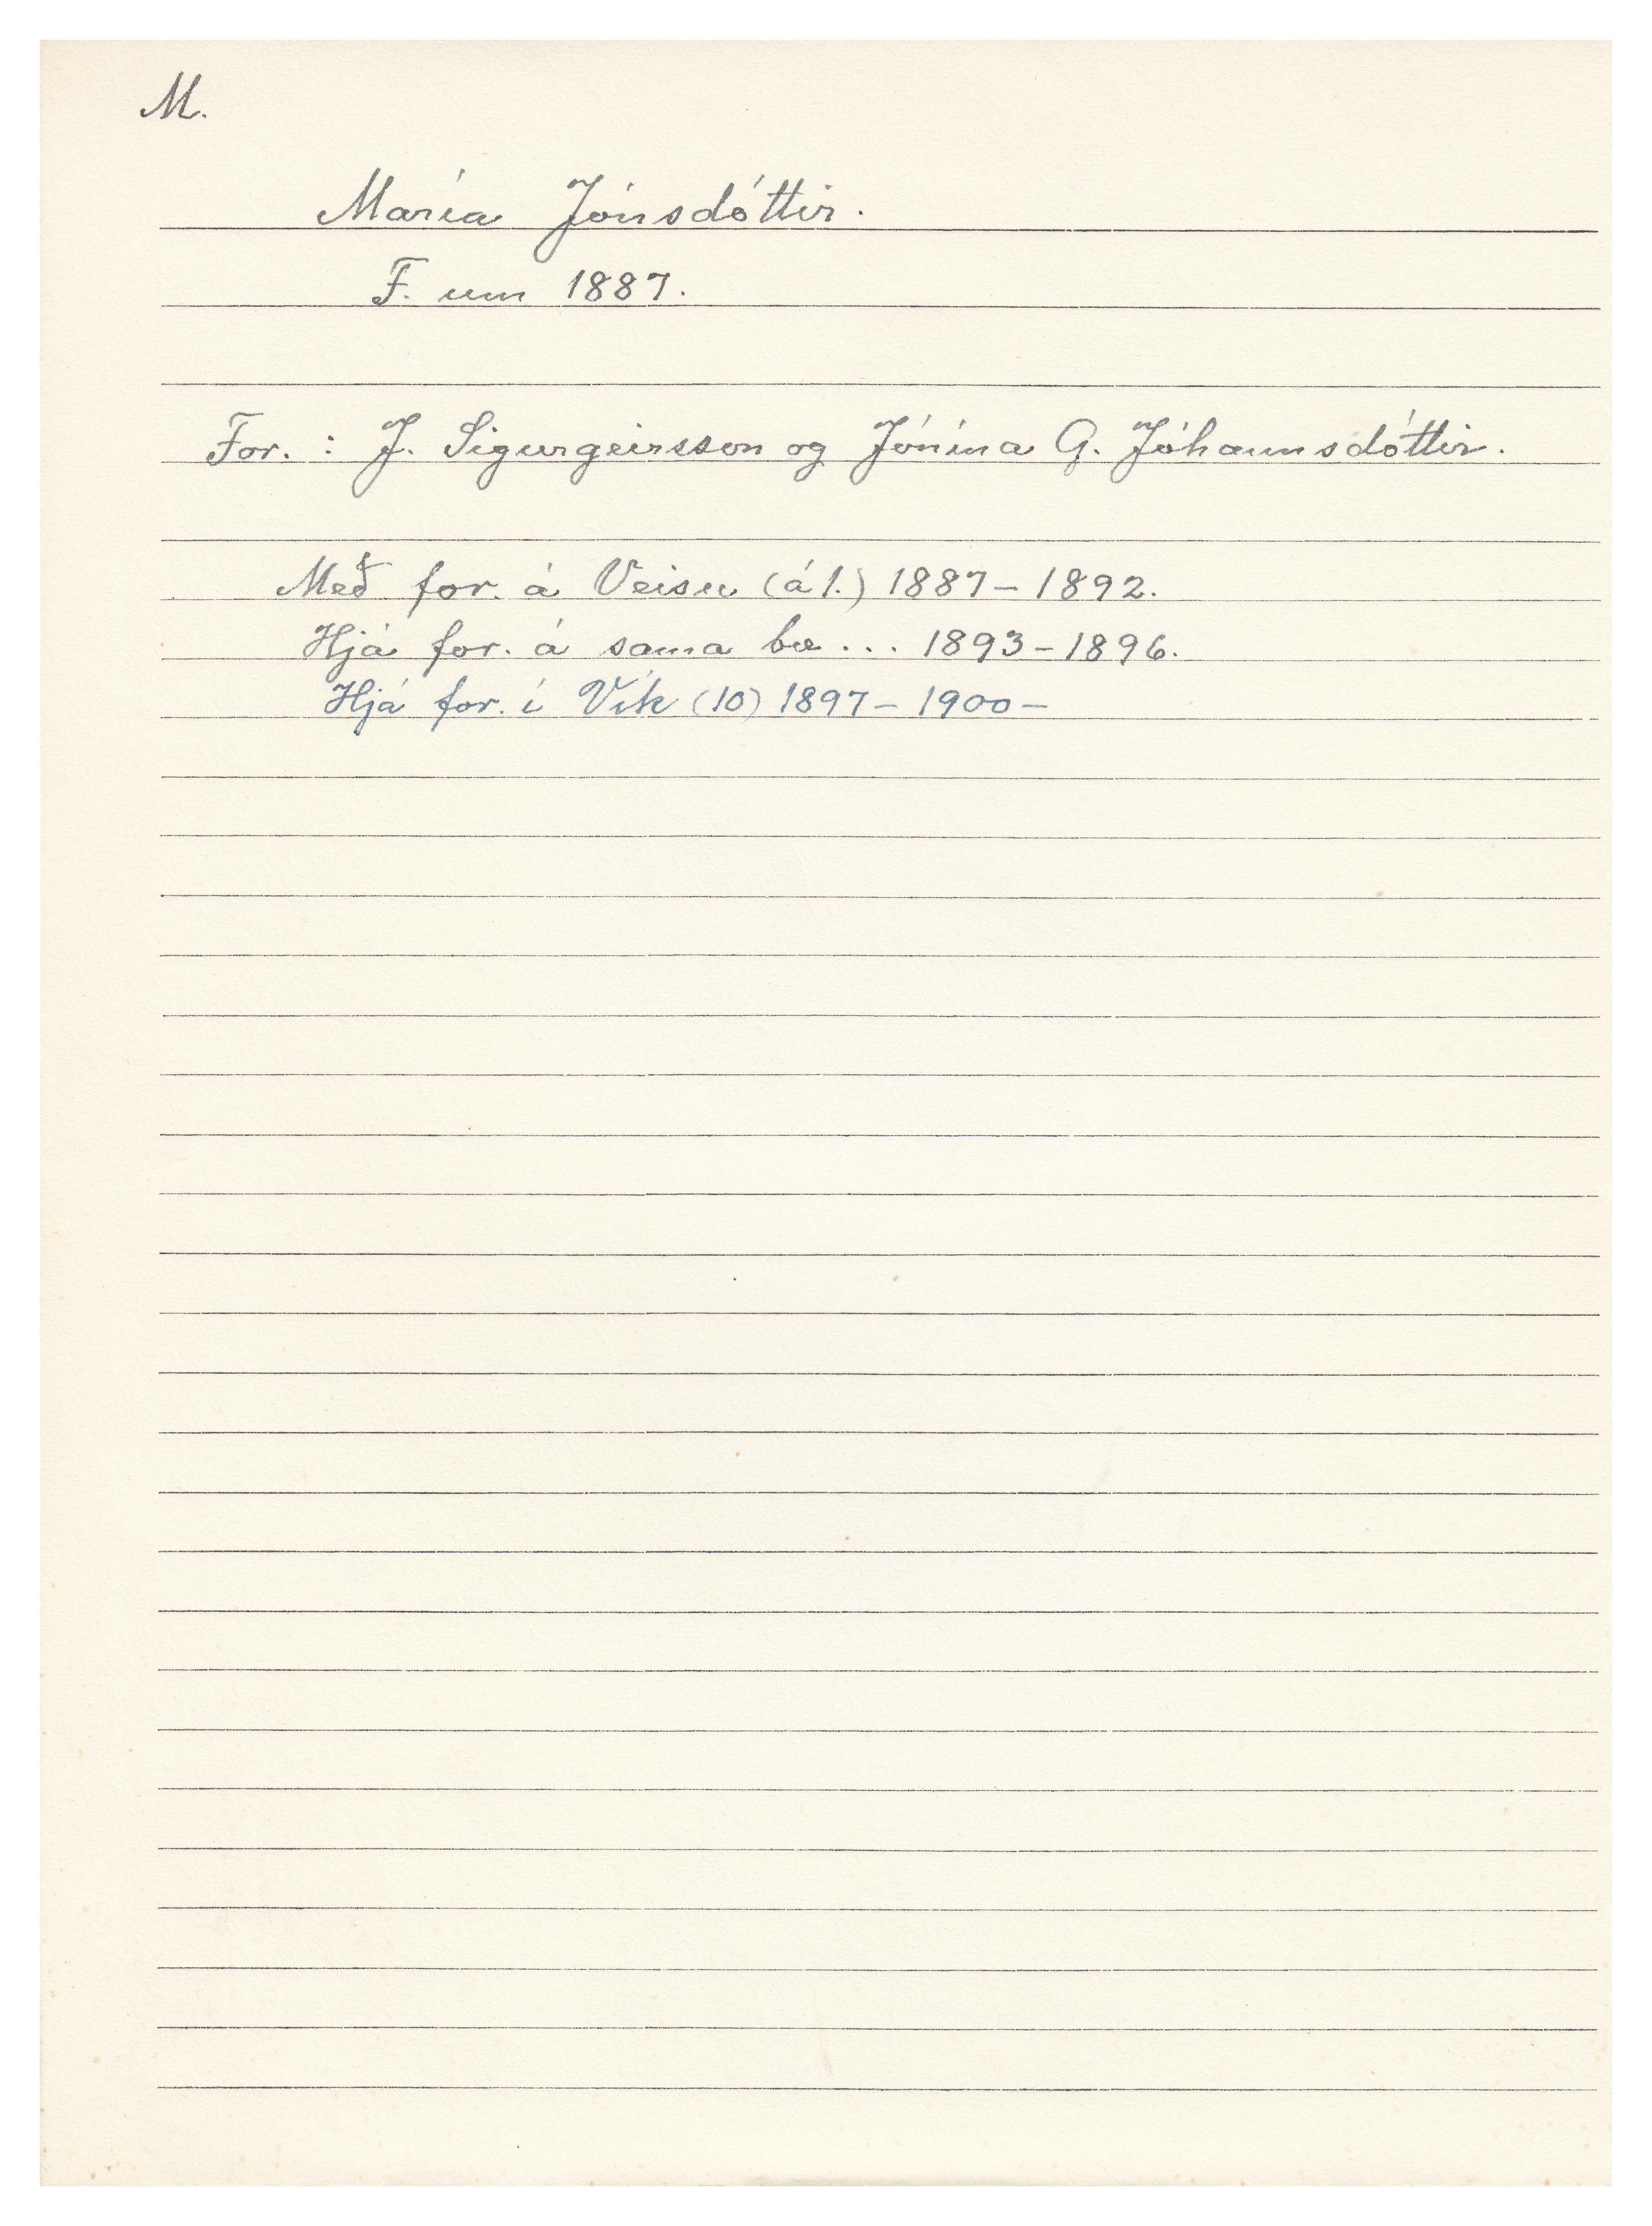 M.
María Jónsdóttir.
F. um 1887.
For. : J. Sigurgeirsson og Jónína G. Jóhannsdóttir.
Með for. á Veisu (á 1.) 1887 – 1892.
Hjá for. á sama bæ ... 1893 – 1896.
Hjá for. í Vík (10) 1897 – 1900 –